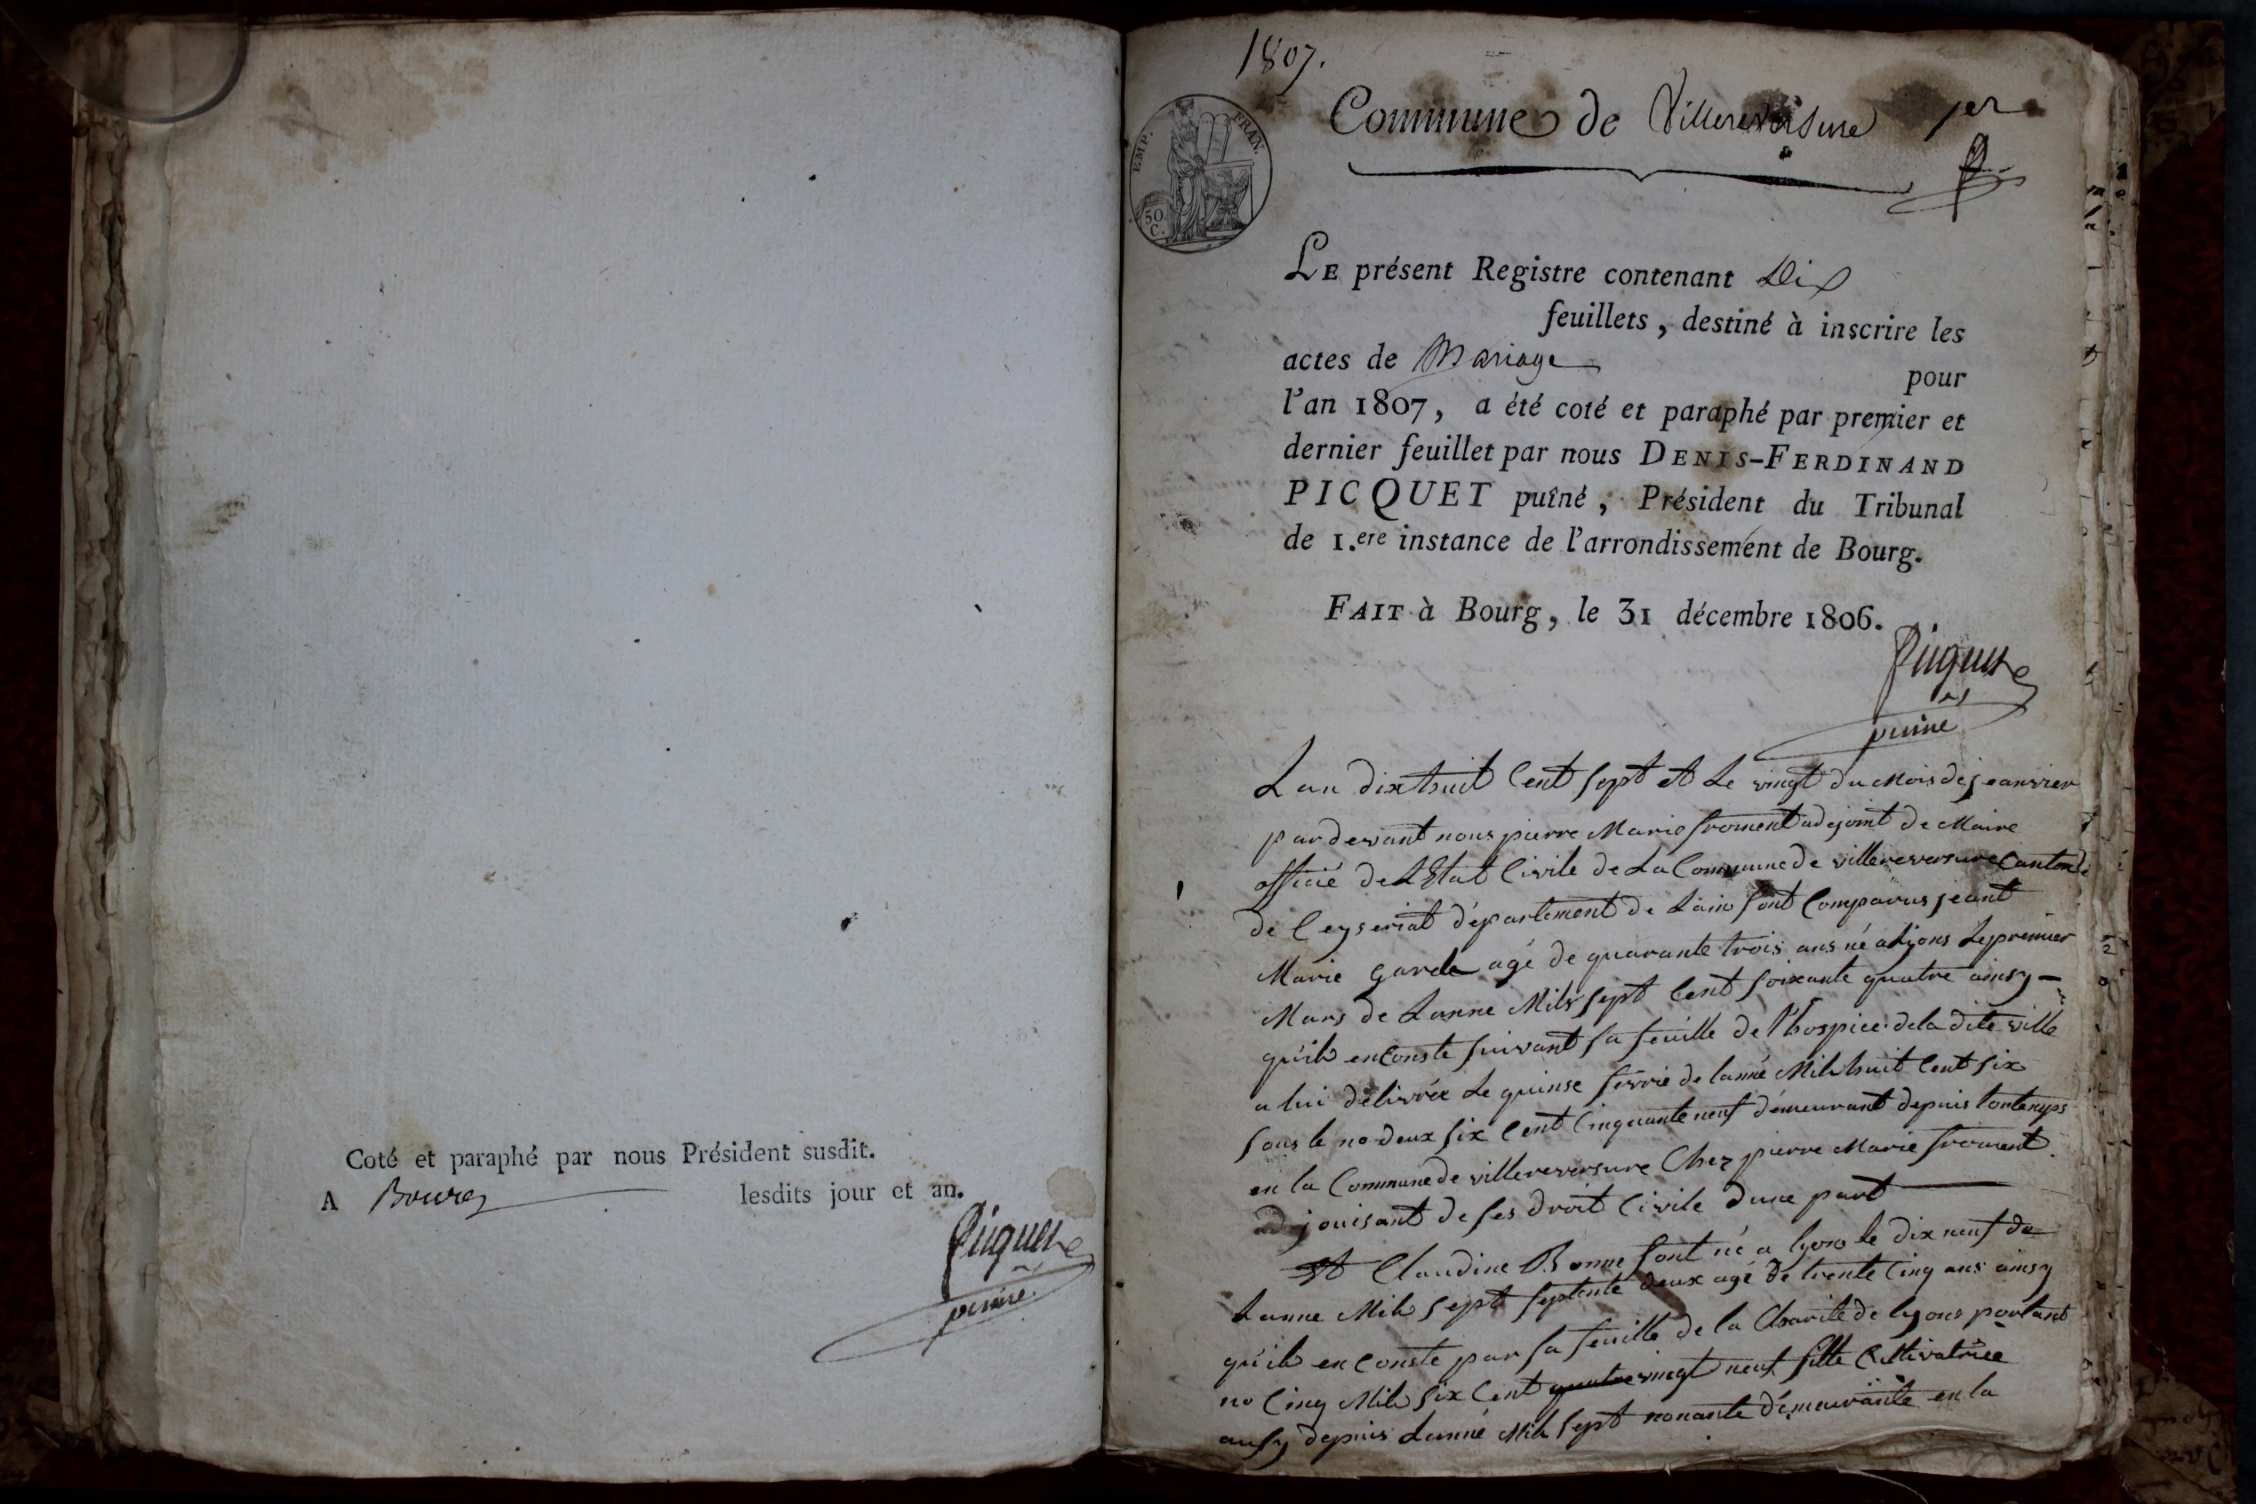 Coté et paraphé par nous Président susdit.
A Bourg lesdits jour et an.
Picquet
puiné
1807.
EMP. FRAN.
50 C.
Commune de Villereversure 1er
LE présent Registre contenant Dix
feuillets, destiné à inscrire les
actes de Mariage pour
l'an 1807, a été coté et paraphé par premier et
dernier feuillet par nous DENIS-FERDINAND
PICQUET puîné, Président du Tribunal
de 1.ere instance de l'arrondissement de Bourg.
FAIT à Bourg, le 31 décembre 1806.
Picquet
puiné
Lan dix huit Cent sept et Le vingt du Mois de jeanvier
par devant nous pierre Marie froment adejoint de Maire
officié de LEtat Civile de La Commune de villereversure Canton
de Ceyseriat département de Lain sont Comparus jeant
Marie garde agé de quarante trois ans né a Lyons Le premier
Mars de Lanne Mil sept Cent soixante quatre ainsy
qu'il en Conste suivant sa feuille de l'hospice de la dite ville
a lui délivrée Le quinse fevrié de lanné Mil huit Cent six
sous le no deux six Cent Cinquante neuf démeurant depuis lontemps
en la Commune de villereversure Chez pierre Marie froment
jouisant de ses droit Civile dune part
Et Claudine Bonne font né a lyon le dix neuf de
Lanne Mil sept septente deux agé de trente Cinq ans ainsy
qu'il en Conste par sa feuille de la Charité de lyons portant
no Cinq Mil six Cent quatre vingt neuf fille Cultivatrice
ausy depuis Lanné Mil sept nonante démeurante en la